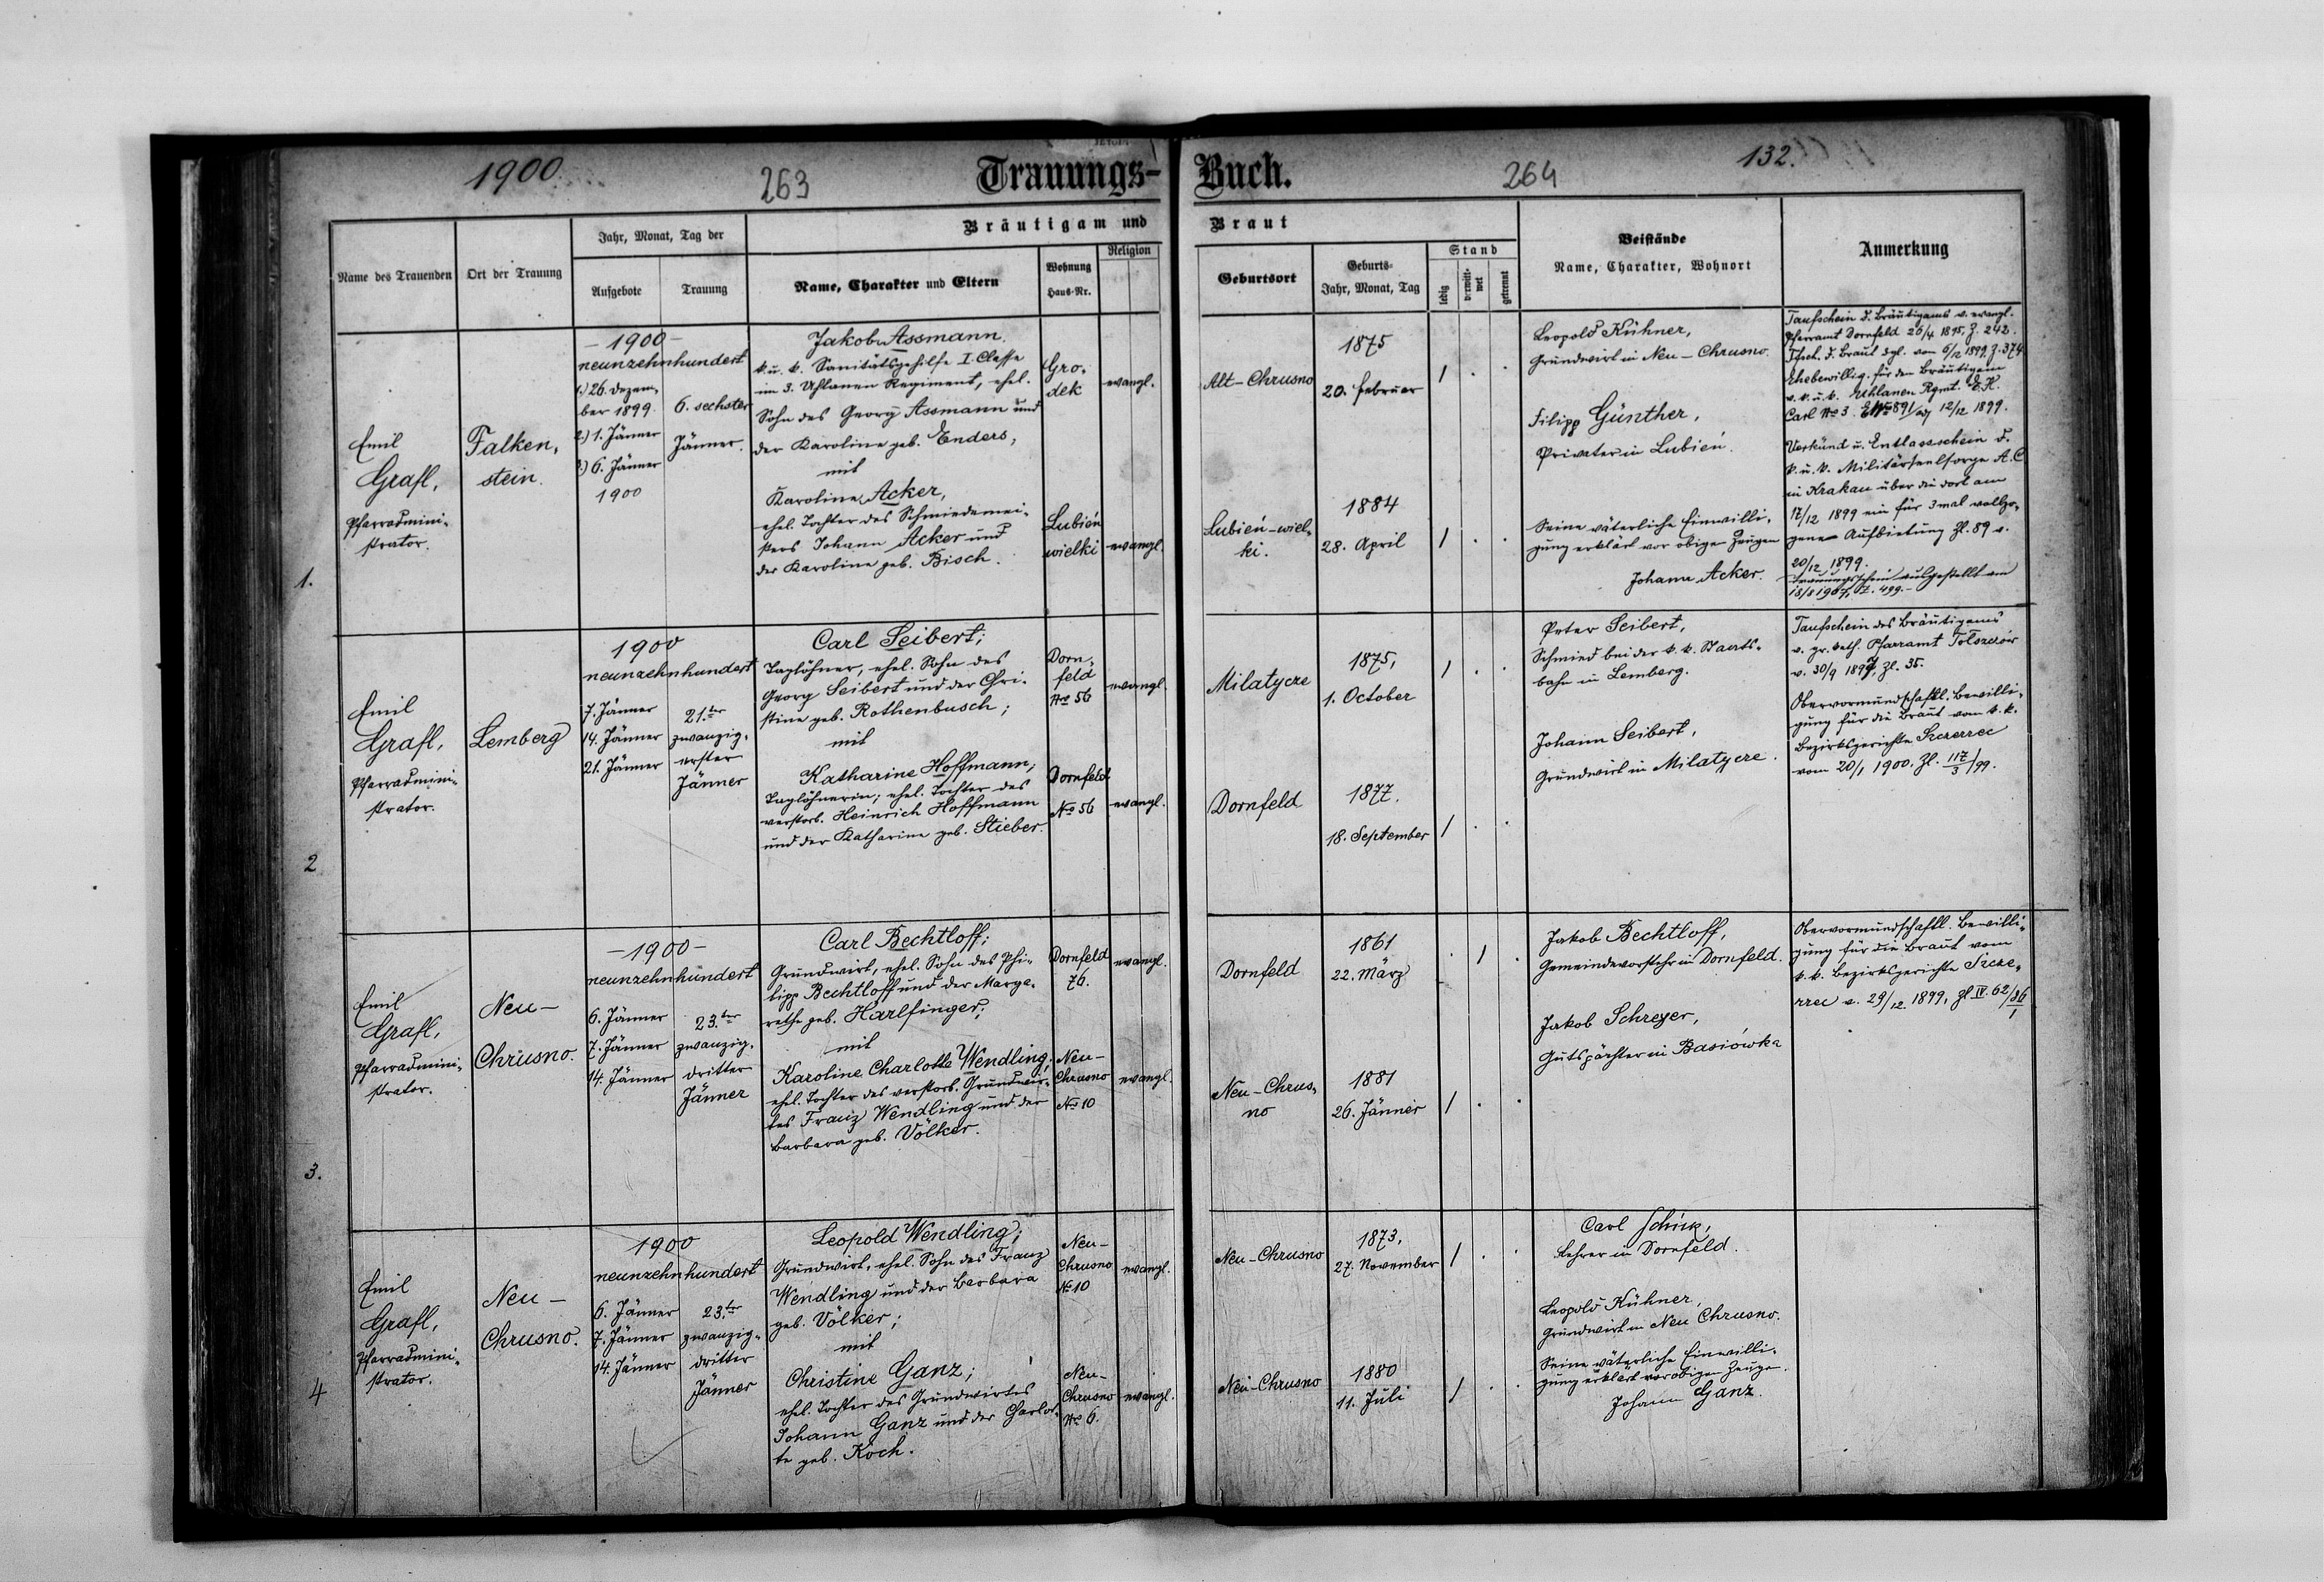 1900
263
Trauungs-
Buch.
264
132.
Bräutigam und
Braut
Name des Trauenden
Ort der Trauung
Jahr, Monat, Tag der
Aufgebote
Trauung
Name, Charakter und Eltern
Wohnung
Haus-Nr.
Religion
Geburtsort
Geburts-
Jahr, Monat, Tag
Stand
ledig
verwitt-
wet
getrennt
Beistände
Name, Charakter, Wohnort
Anmerkung
1.
Emil
Grafl,
Pfarradmini-
strator.
Falken-
stein.
-1900-
neunzehnhundert
1.) 26. Dezem-
ber 1899.
2.) 1. Jänner
3.) 6. Jänner
1900
6. sechster
Jänner.
Jakob Assmann.
k. u. k. Sanitätsgehilfe I. Classe
im 3. Uhlanen Regiment, ehel.
Sohn des Georg Assmann und
der Karoline geb. Enders,
mit
Karoline Acker,
ehel. Tochter des Schmiedemei-
sters Johann Acker und
der Karoline geb. Bisch.
Gro-
dek
evangl.
Lubień
wielki
evangl.
Alt-Chrusno
1875
20. Februar
1 . .
Lubień-wiel-
ki.
1884
28. April
1 . .
Leopold Kühner,
Grundwirt in Neu-Chrusno.
Filipp Günther,
Privater in Lubień.
Seine väterliche Einwilli-
gung erklärt vor obigen Zeugen
Johann Acker.
Taufschein d. Bräutigams v. evangl.
Pfarramt Dornfeld 26/4 1895, Z. 242.
Tfsch. d. Braut dgl. vom 6/12 1899, Z. 374
Ehebewillig. für den Bräutigam
v. k. u. k. Uhlanen Rgmt. E. H.
Carl No 3. 12/12 1899.
Verkünd u. Entlassschein d.
k. u. k. Militärseelsorge A. C
in Krakau über die dort am
17/12 1899 ein für 3mal vollzo-
gene Aufbietung Zl. 89 v.
20/12 1899.
Trauungsschein ausgestellt am
18/8 1907, Z. 499.-
2
Emil
Grafl,
Pfarradmini-
strator.
Lemberg
1900
neunzehnhundert
7. Jänner
14. Jänner
21. Jänner
21.ter
zwanzig-
erster
Jänner
Carl Seibert;
Taglöhner, ehel. Sohn des
Georg Seibert und der Chri-
stine geb. Rothenbusch;
mit
Katharine Hoffmann;
Taglöhnerin; ehel. Tochter des
verstorb. Heinrich Hoffmann
und der Katharine geb. Stieber.
Dorn-
feld
No 56
evangl.
Dornfeld
No 56
evangl.
Milatycze
1875,
1. October
1 . .
Dornfeld
1877.
18. September
1 . .
Peter Seibert,
Schmied bei der k. k. Staats-
bahn in Lemberg.
Johann Seibert,
Grundwirt in Milatycze.
Taufschein des Bräutigams
v. gr. kath. Pfarramt Tołszczów
v. 30/9 1897, Zl. 35.
Obervormundschaftl. Bewilli-
gung für die Braut vom k. k.
Bezirksgerichte Szczerzec
vom 20/1 1900. Zl. 117/3/99.
3.
Emil
Grafl,
Pfarradmini-
strator.
Neu-
Chrusno.
-1900-
neunzehnhundert
6. Jänner
7. Jänner
14. Jänner
23.ter
zwanzig-
dritter
Jänner
Carl Bechtloff;
Grundwirt, ehel. Sohn des Phi-
lipp Bechtloff und der Marga-
rethe geb. Harlfinger;
mit
Karoline Charlotte Wendling,
ehel. Tochter des verstorb. Grundwir-
tes Franz Wendling und der
Barbara geb. Völker.
Dornfeld
76.
evangl.
Neu-
Chrusno
No 10
evangl.
Dornfeld
1861
22. März
. 1 .
Neu-Chrus-
no
1881
26. Jänner
1 . .
Jakob Bechtloff,
Gemeindevorsteher in Dornfeld.
Jakob Schreyer,
Gutspächter in Basiówka
Obervormundschaftl. Bewilli-
gung für die Braut vom
k. k. Bezirksgerichte Szcze-
rzec v. 29/12 1899, Zl. IV. 62/86/1
4
Emil
Grafl,
Pfarradmini-
strator.
Neu-
Chrusno.
1900
neunzehnhundert
6. Jänner
7. Jänner
14. Jänner
23.ter
zwanzig-
dritter
Jänner
Leopold Wendling;
Grundwirt, ehel. Sohn des Franz
Wendling und der Barbara
geb. Völker;
mit
Christine Ganz;
ehel. Tochter des Grundwirtes
Johann Ganz und der Charlot-
te geb. Koch.
Neu-
Chrusno
No 10
evangl.
Neu-
Chrusno
No 6.
evangl.
Neu-Chrusno
1873,
27. November
1 . .
Neu-Chrusno
1880
11. Juli
1 . .
Carl Schick,
Lehrer in Dornfeld.
Leopold Kühner,
Grundwirt in Neu Chrusno.
Seine väterliche Einwilli-
gung erklärt vor obigen Zeugen.
Johann Ganz.